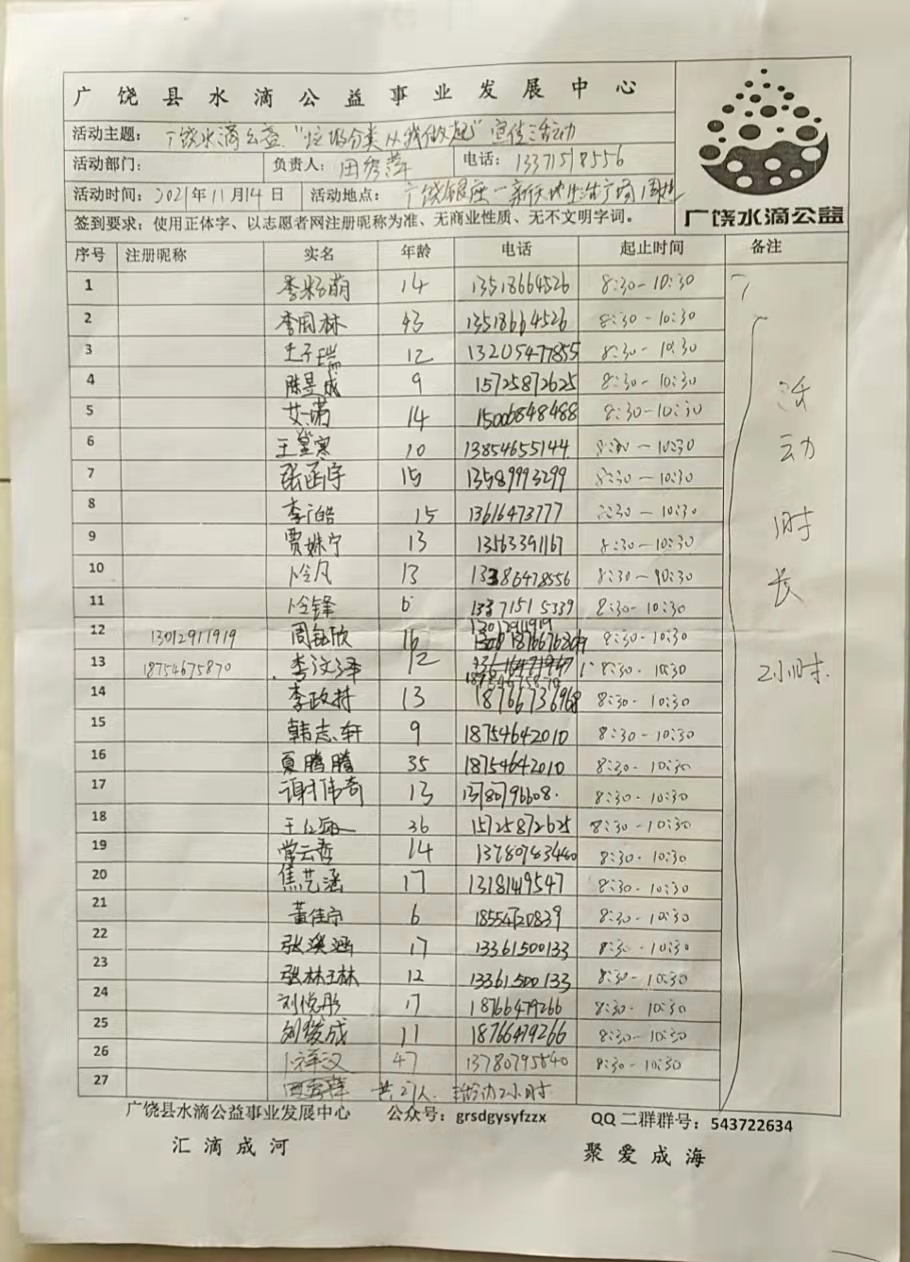 广饶县水滴公益事业发展中心
活动主题: 广饶水滴公益“垃圾分类从我做起”宣传活动
活动部门: 负责人: 田秀萍 电话: 13371518556
活动时间: 2021年11月14日 活动地点: 广饶银座—新天地生活广场周边
广饶水滴公益
签到要求: 使用正体字、以志愿者网注册昵称为准、无商业性质、无不文明字词。
序号 注册昵称 实名 年龄 电话 起止时间 备注
1 李籽萌 14 13518664526 8:30-10:30
2 李国林 43 13518664526 8:30-10:30
3 王子瑞 12 13205477855 8:30-10:30
4 陈昱成 9 15725872625 8:30-10:30
5 艾潇 14 15006848488 8:30-10:30
6 王 10 13854655144 8:30-10:30
7 张函宇 15 13589993299 8:30-10:30
8 李皓 15 13616473777 8:30-10:30
9 贾姝宁 13 13563391167 8:30-10:30
10 冷凡 13 13386478556 8:30-10:30
11 冷锋 6 13371515339 8:30-10:30
12 13012911919 周钰欣 16 13012911919 8:30-10:30
13 18754675870 李汶泽 12 8:30-10:30
14 李政 13 18766736968 8:30-10:30
15 韩志轩 9 18754642010 8:30-10:30
16 夏腾腾 35 18754642010 8:30-10:30
17 谢伟奇 13 13780796608 8:30-10:30
18 王 36 15725872625 8:30-10:30
19 常云哲 14 13780783440 8:30-10:30
20 焦艺涵 17 13181419547 8:30-10:30
21 董佳宁 6 18554720839 8:30-10:30
22 张溪涵 17 13361500133 8:30-10:30
23 张林琳 12 13361500133 8:30-10:30
24 刘悦彤 17 18766479266 8:30-10:30
25 刘骏成 11 18766479266 8:30-10:30
26 47 13780795840 8:30-10:30
27 田秀萍 共27人 活动2小时
活动时长2小时.
广饶县水滴公益事业发展中心 公众号: grsdgysyfzzx QQ二群群号: 543722634
汇滴成河 聚爱成海